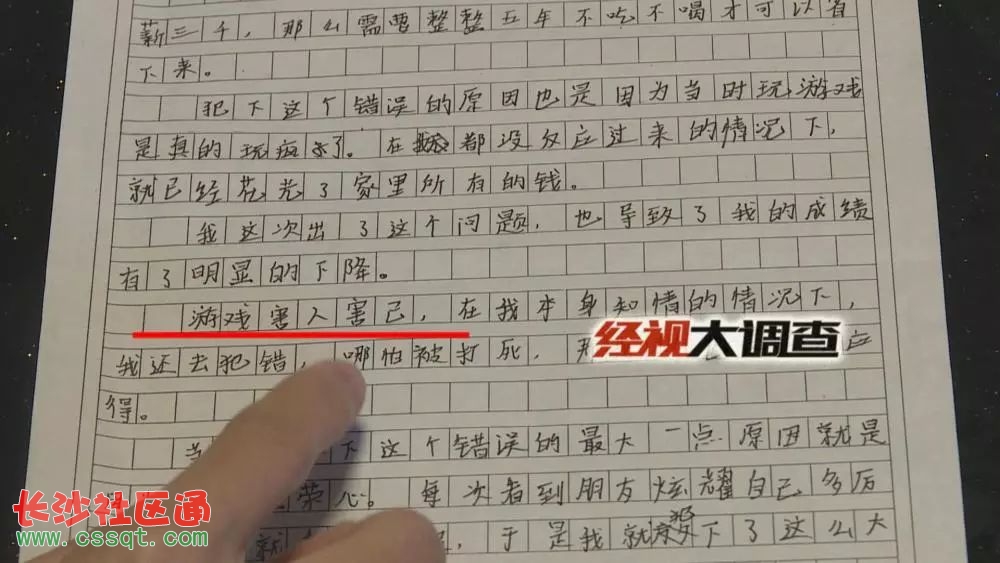 薪三千，那么需要整整五年不吃不喝才可以省
下来。
犯下这个错误的原因也是因为当时玩游戏
是真的玩疯了。在我都没反应过来的情况下，
就已经花光了家里所有的钱。
我这次出了这个问题，也导致了我的成绩
有了明显的下降。
游戏害人害己，在我本身知情的情况下，
我还去犯错，哪怕被打死，应
经视大调查
得。
下这个错误的最大一点原因就是
荣心。每次看到朋友炫耀自己多厉
，于是我就犯下了这么大
长沙社区通
www.cssqt.com